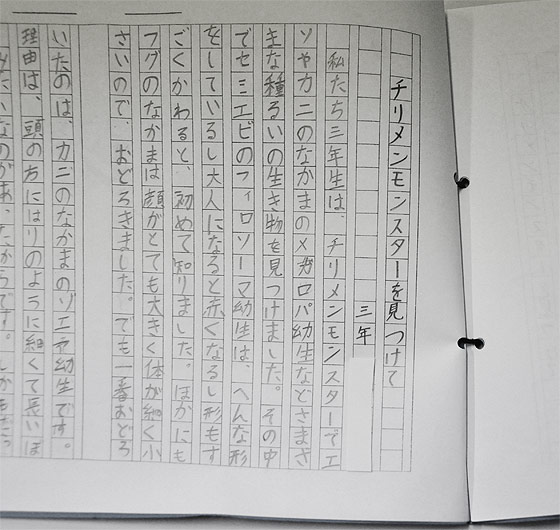 チリメンモンスターを見つけて
三年
私たち三年生は、チリメンモンスターでエ
ソやカニのなかまのメガロパ幼生などさまざ
まな種るいの生き物を見つけました。その中
でセミエビのフィロソーマ幼生は、へんな形
をしているし大人になると赤くなるし形もす
ごくかわると、初めて知りました。ほかにも
フグのなかまは顔がとても大きく体が細く小
さいので、おどろきました。でも一番おどろ
いたのは、カニのなかまのゾエア幼生です。
理由は、頭の方にはりのように細くて長いぼ
みたいなのがあったからです。